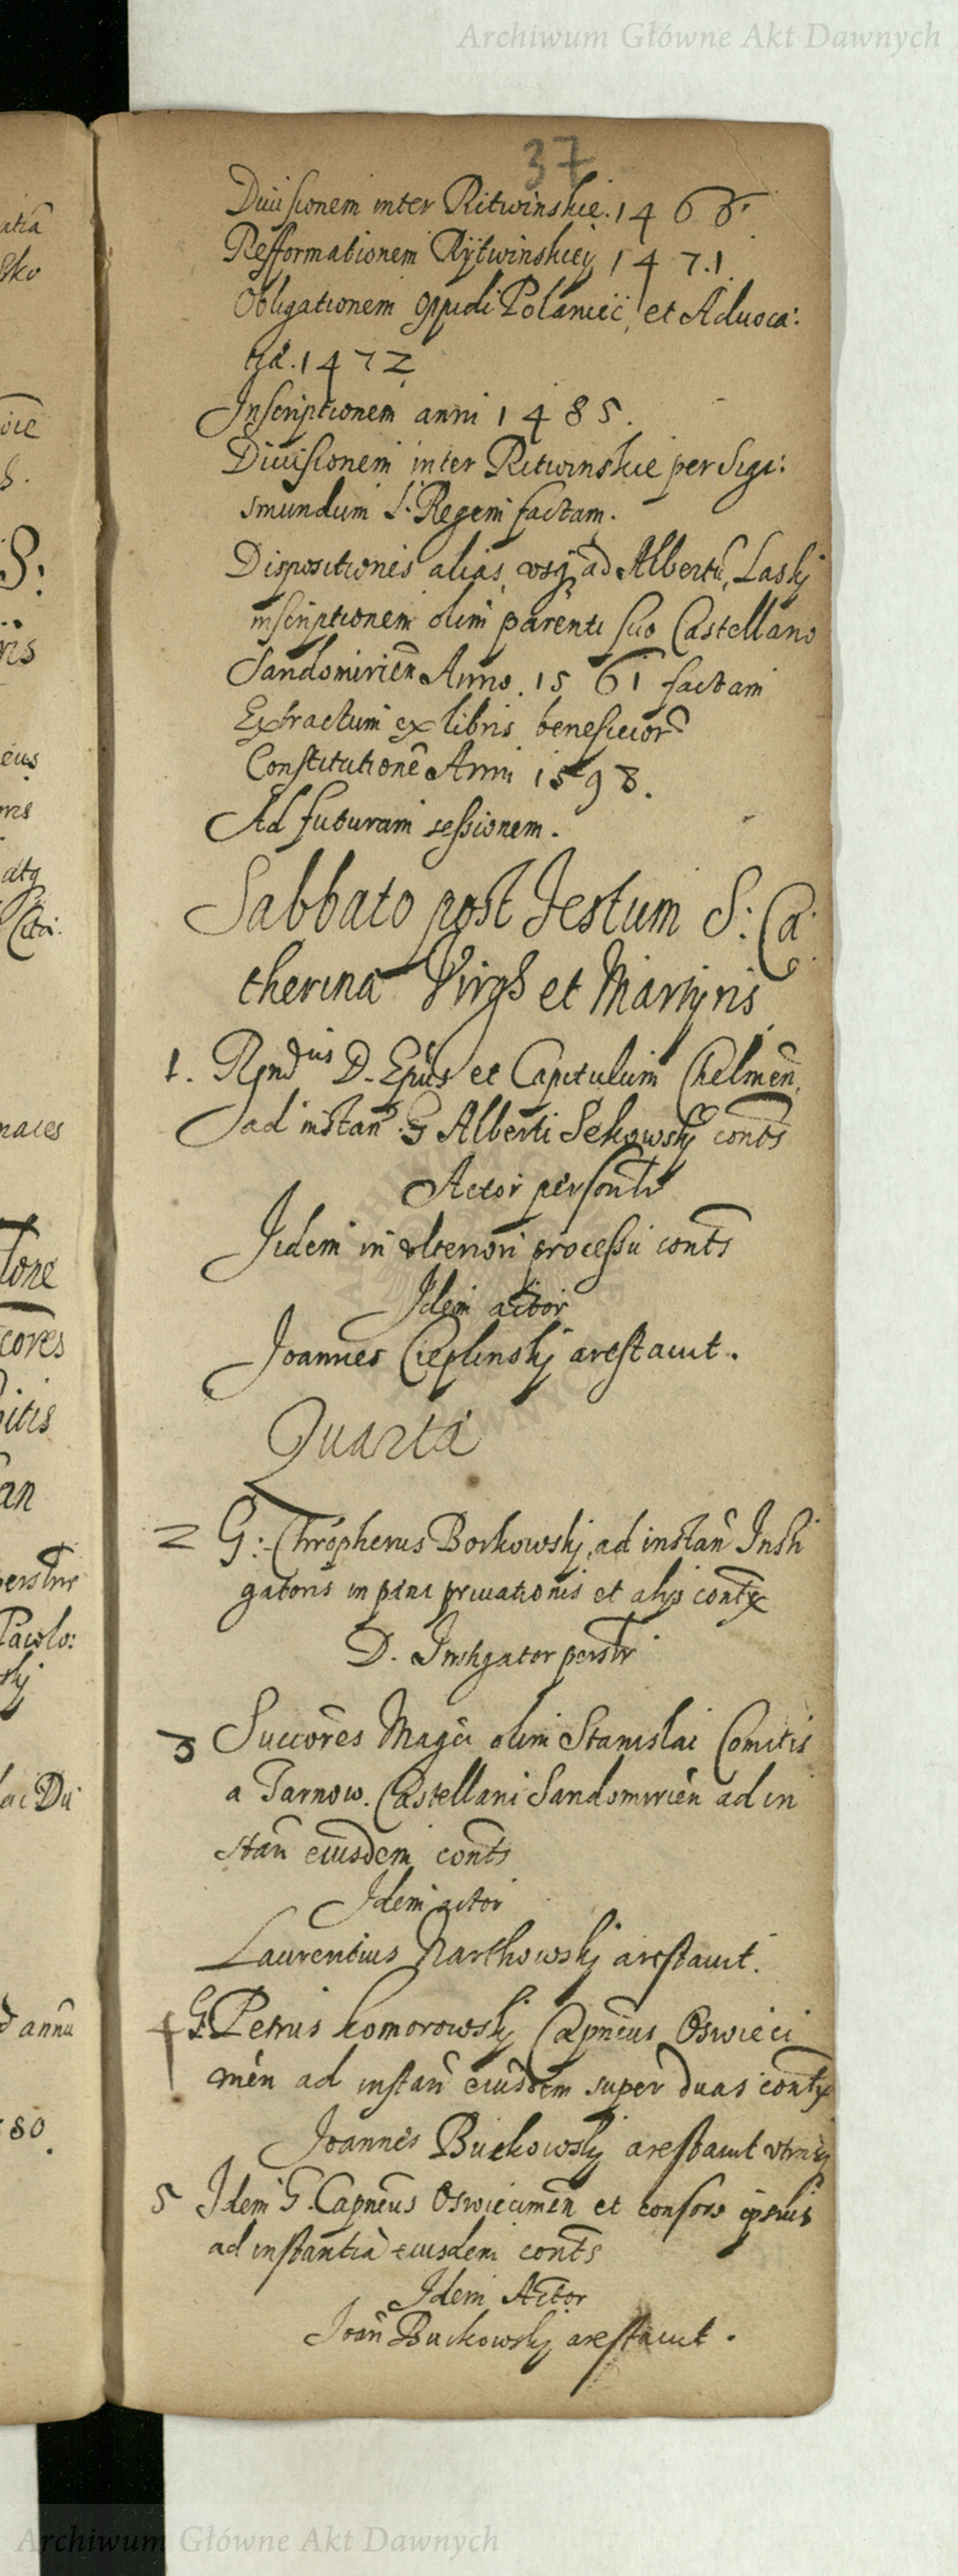 Archiwum Główne Akt Dawnych
37
Diuisionem inter Ritwinskie. 1466.
Refformationem Rÿtwinskiey 1471.
Obligationem oppidi Polaniec, et Aduoca:
tiæ. 1472
Inscriptionem anni 1485.
Diuisionem inter Ritwinskie per Sigi:
smundum S. Regem factam.
Dispositiones alias, vsq ad Albertũ Laskj
inscriptionem olim parenti suo Castellano
Sandomirien̄ Anno. 1561 factam
Extractum ex libris beneficior
Constitutionē Anni 1598.
Ad futuram sessionem.
Sabbato post Festum S: Ca
therinæ Virgs et Martyris
1. Rndus D. Ep̃us et Capitulum Chelmen̄
ad instan̄ G Alberti Sekowskj conts
Actor personlr
Idem in vlteriori processu conts
Idem actor
Joannes Cieplinskj arestauit.
Quarta
2 G: Chrõpherus Borkowskj, ad instan̄ Insti
gatoris in pæna priuationis et alijs contx
D. Instigator perslr
3 Succores Magci olim Stanislai Comitis
a Tarnow. Castellani Sandomirien̄ ad in
stan̄ eiusdem conts
Idem actor
Laurentius Narthowskj arestauit.
4 G. Petrus Komorowskj Capneus Oswieci
men̄ ad instan̄ eiusdem super duas contx
Joannes Buckowskj arestauit
5 Idem G. Capneus Oswiecimen̄ et consors ipsius
ad instantiã eiusdem conts
Idem Actor
Joan̄ Buckowskj arestauit.
atiã
sko
S:
eus
atq
naces
tore
cores
itis
an
Pacolo:
skj
Du
annũ
80.
Archiwum Główne Akt Dawnych